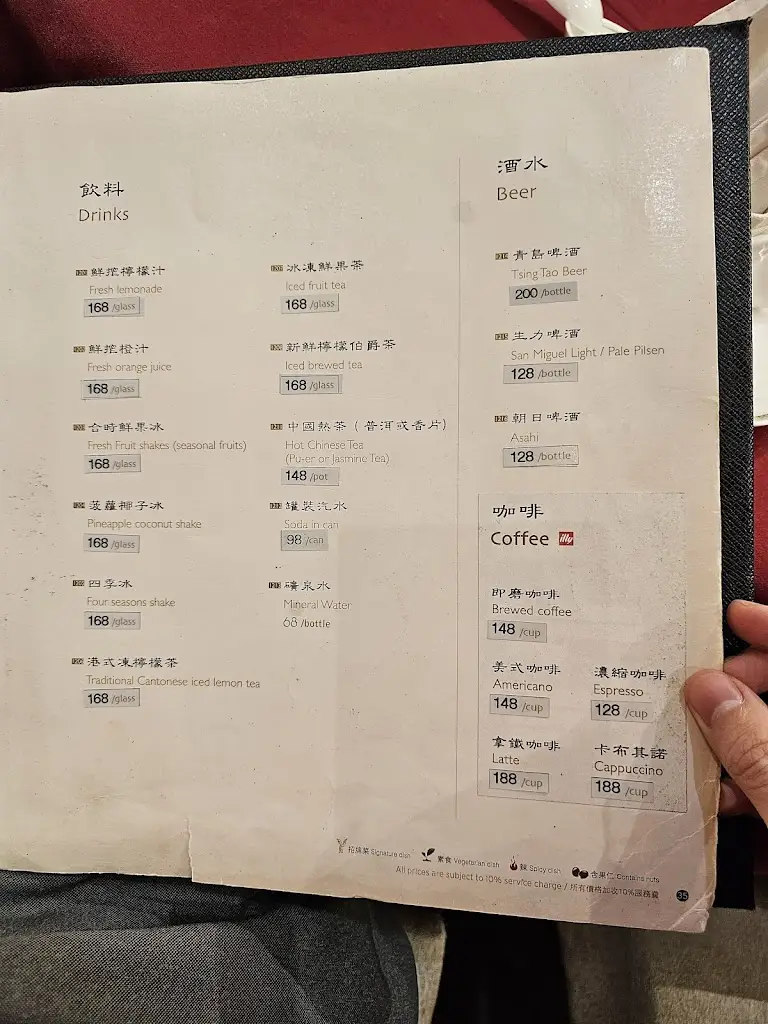 飲料
Drinks
鮮搾檸檬汁
Fresh lemonade
168 /glass
鮮搾橙汁
Fresh orange juice
168 /glass
合時鮮果冰
Fresh Fruit shakes (seasonal fruits)
168 /glass
菠蘿椰子冰
Pineapple coconut shake
168 /glass
四季冰
Four seasons shake
168 /glass
港式凍檸檬茶
Traditional Cantonese iced lemon tea
168 /glass
冰凍鮮果茶
Iced fruit tea
168 /glass
新鮮檸檬伯爵茶
Iced brewed tea
168 /glass
中國熱茶 ( 普洱或香片)
Hot Chinese Tea
(Pu-er or Jasmine Tea)
148 /pot
罐裝汽水
Soda in can
98 /can
礦泉水
Mineral Water
68 /bottle
酒水
Beer
青島啤酒
Tsing Tao Beer
200 /bottle
生力啤酒
San Miguel Light / Pale Pilsen
128 /bottle
朝日啤酒
Asahi
128 /bottle
咖啡
Coffee illy
即磨咖啡
Brewed coffee
148 /cup
美式咖啡
Americano
148 /cup
濃縮咖啡
Espresso
128 /cup
拿鐵咖啡
Latte
188 /cup
卡布其諾
Cappuccino
188 /cup
招牌菜 Signature dish 素食 Vegetarian dish 辣 Spicy dish 含果仁 Contains nuts
All prices are subject to 10% service charge / 所有價格加收10%服務費
35